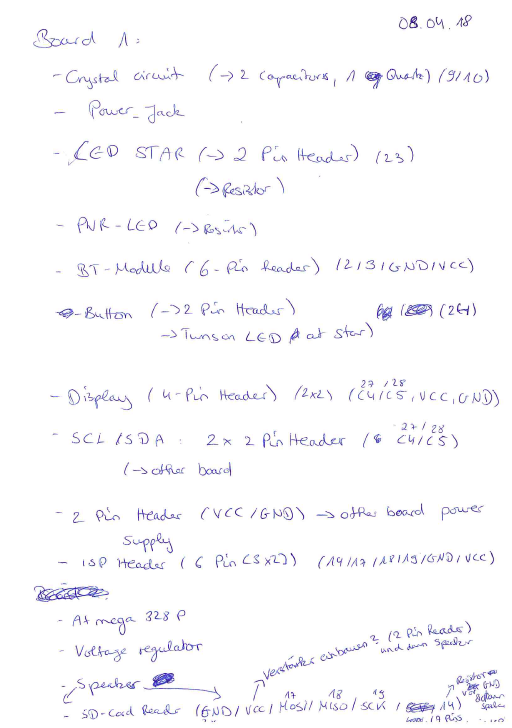 08.04.18
Board 1:
- Crystal circuit (→ 2 Capacitors, 1 Quartz) (9/10)
- Power-Jack
- LED STAR (→ 2 Pin Header) (23)
(→ Resistor)
- PWR-LED (→ Resistor)
- BT-Module (6-Pin header) (2/3/GND/VCC)
- Button (→ 2 Pin Header) (24)
→ Turns on LED at Star)
27 / 28
- Display (4-Pin Header) (2x2) (C4/C5, VCC, GND)
27 / 28
- SCL/SDA : 2x 2 Pin Header (C4/C5)
(→ other board
- 2 Pin Header (VCC/GND) → other board power
supply
- ISP Header (6 Pin (3x2)) (14/17/18/19/GND/VCC)
- Atmega 328P
- Voltage regulator
Verstärker einbauen? (2 Pin Header)
und dann Speaker
- Speaker
Resistor
GND
vor
Speaker
17 18 19
- SD-Card Reader (GND/VCC/MOSI/MISO/SCK/ 14)
(9 Pins